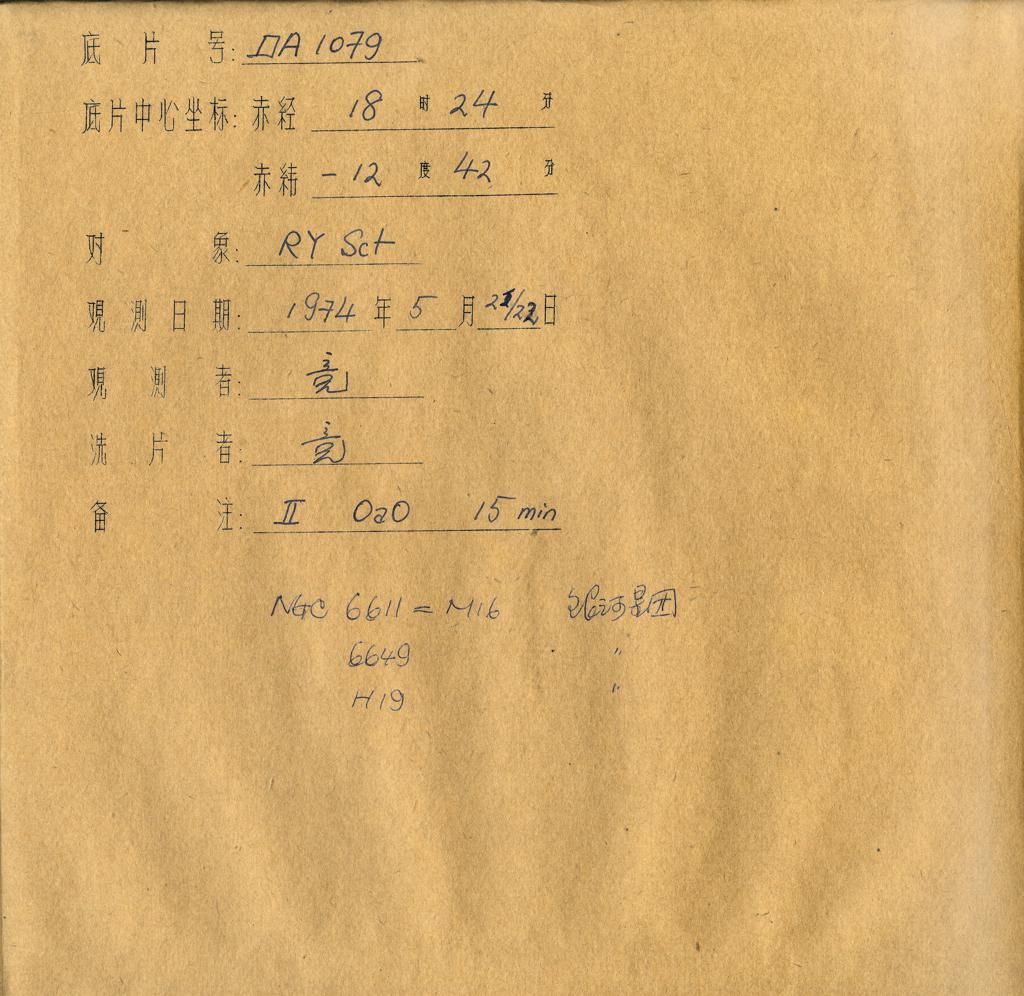 底片号: DA 1079
底片中心坐标: 赤经 18 时 24 分
赤纬 -12 度 42 分
对象: RY Sct
观测日期: 1974 年 5 月 21/22 日
观测者: 竟
洗片者: 竟
备注: II OaO 15 min
NGC 6611 = M16 银河星团
6649 "
H19 "